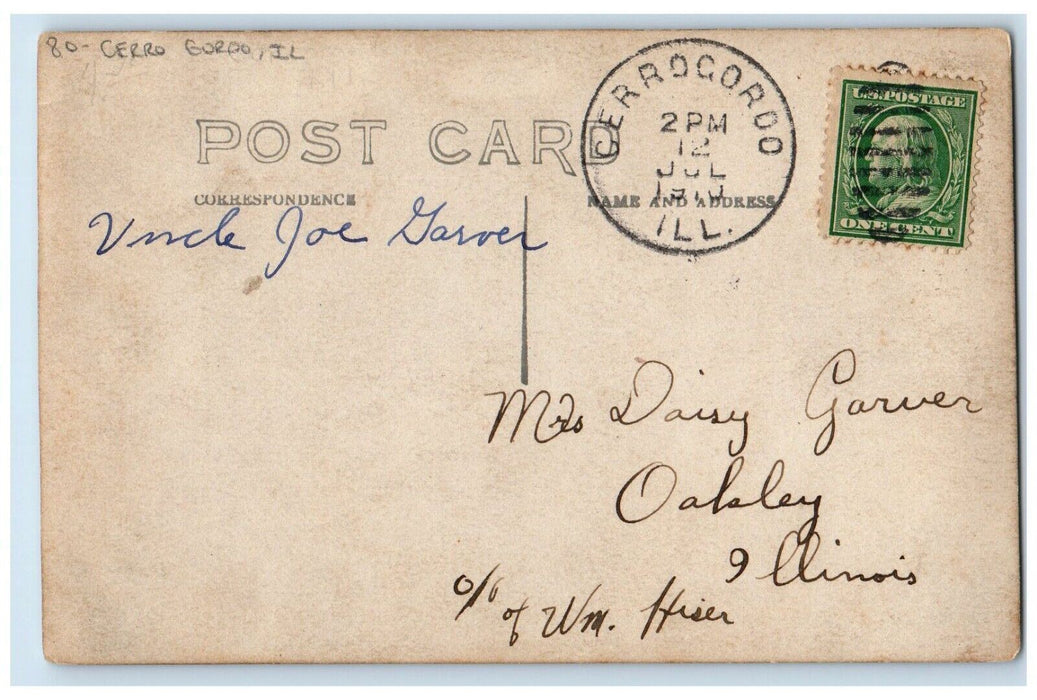 80- CERRO GORDO, IL
POST CARD
CERROGORDO
2 PM
12
JUL
1910
ILL.
U.S. POSTAGE
ONE CENT
CORRESPONDENCE
NAME AND ADDRESS
Uncle Joe Garver
Mrs Daisy Garver
Oakley
Illinois
c/o of Wm. Hiser